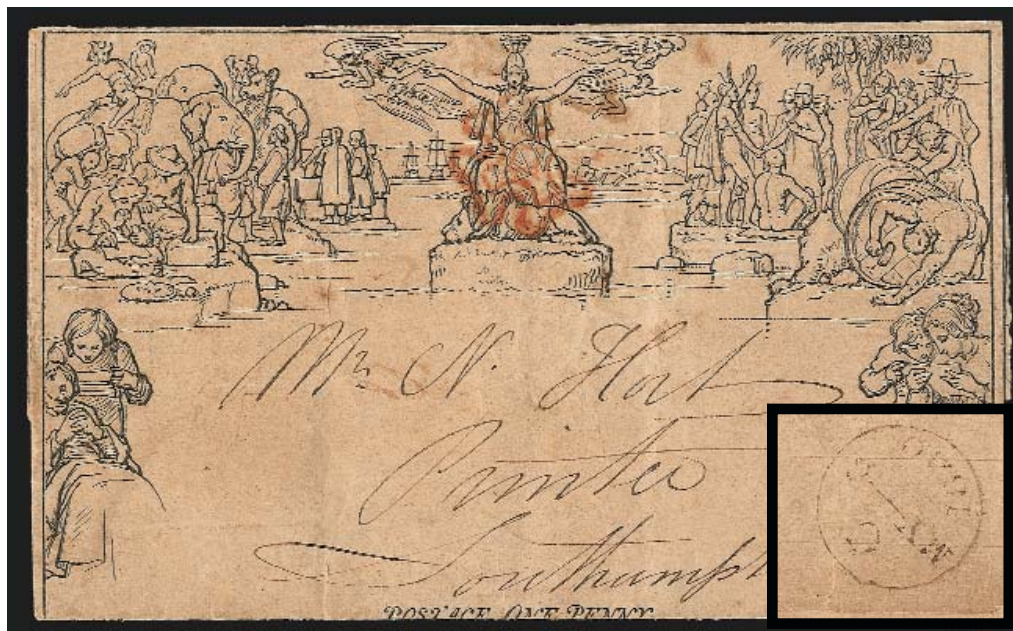 Mr. N. Hort
Printer
Southampt
POSTAGE ONE PENNY.